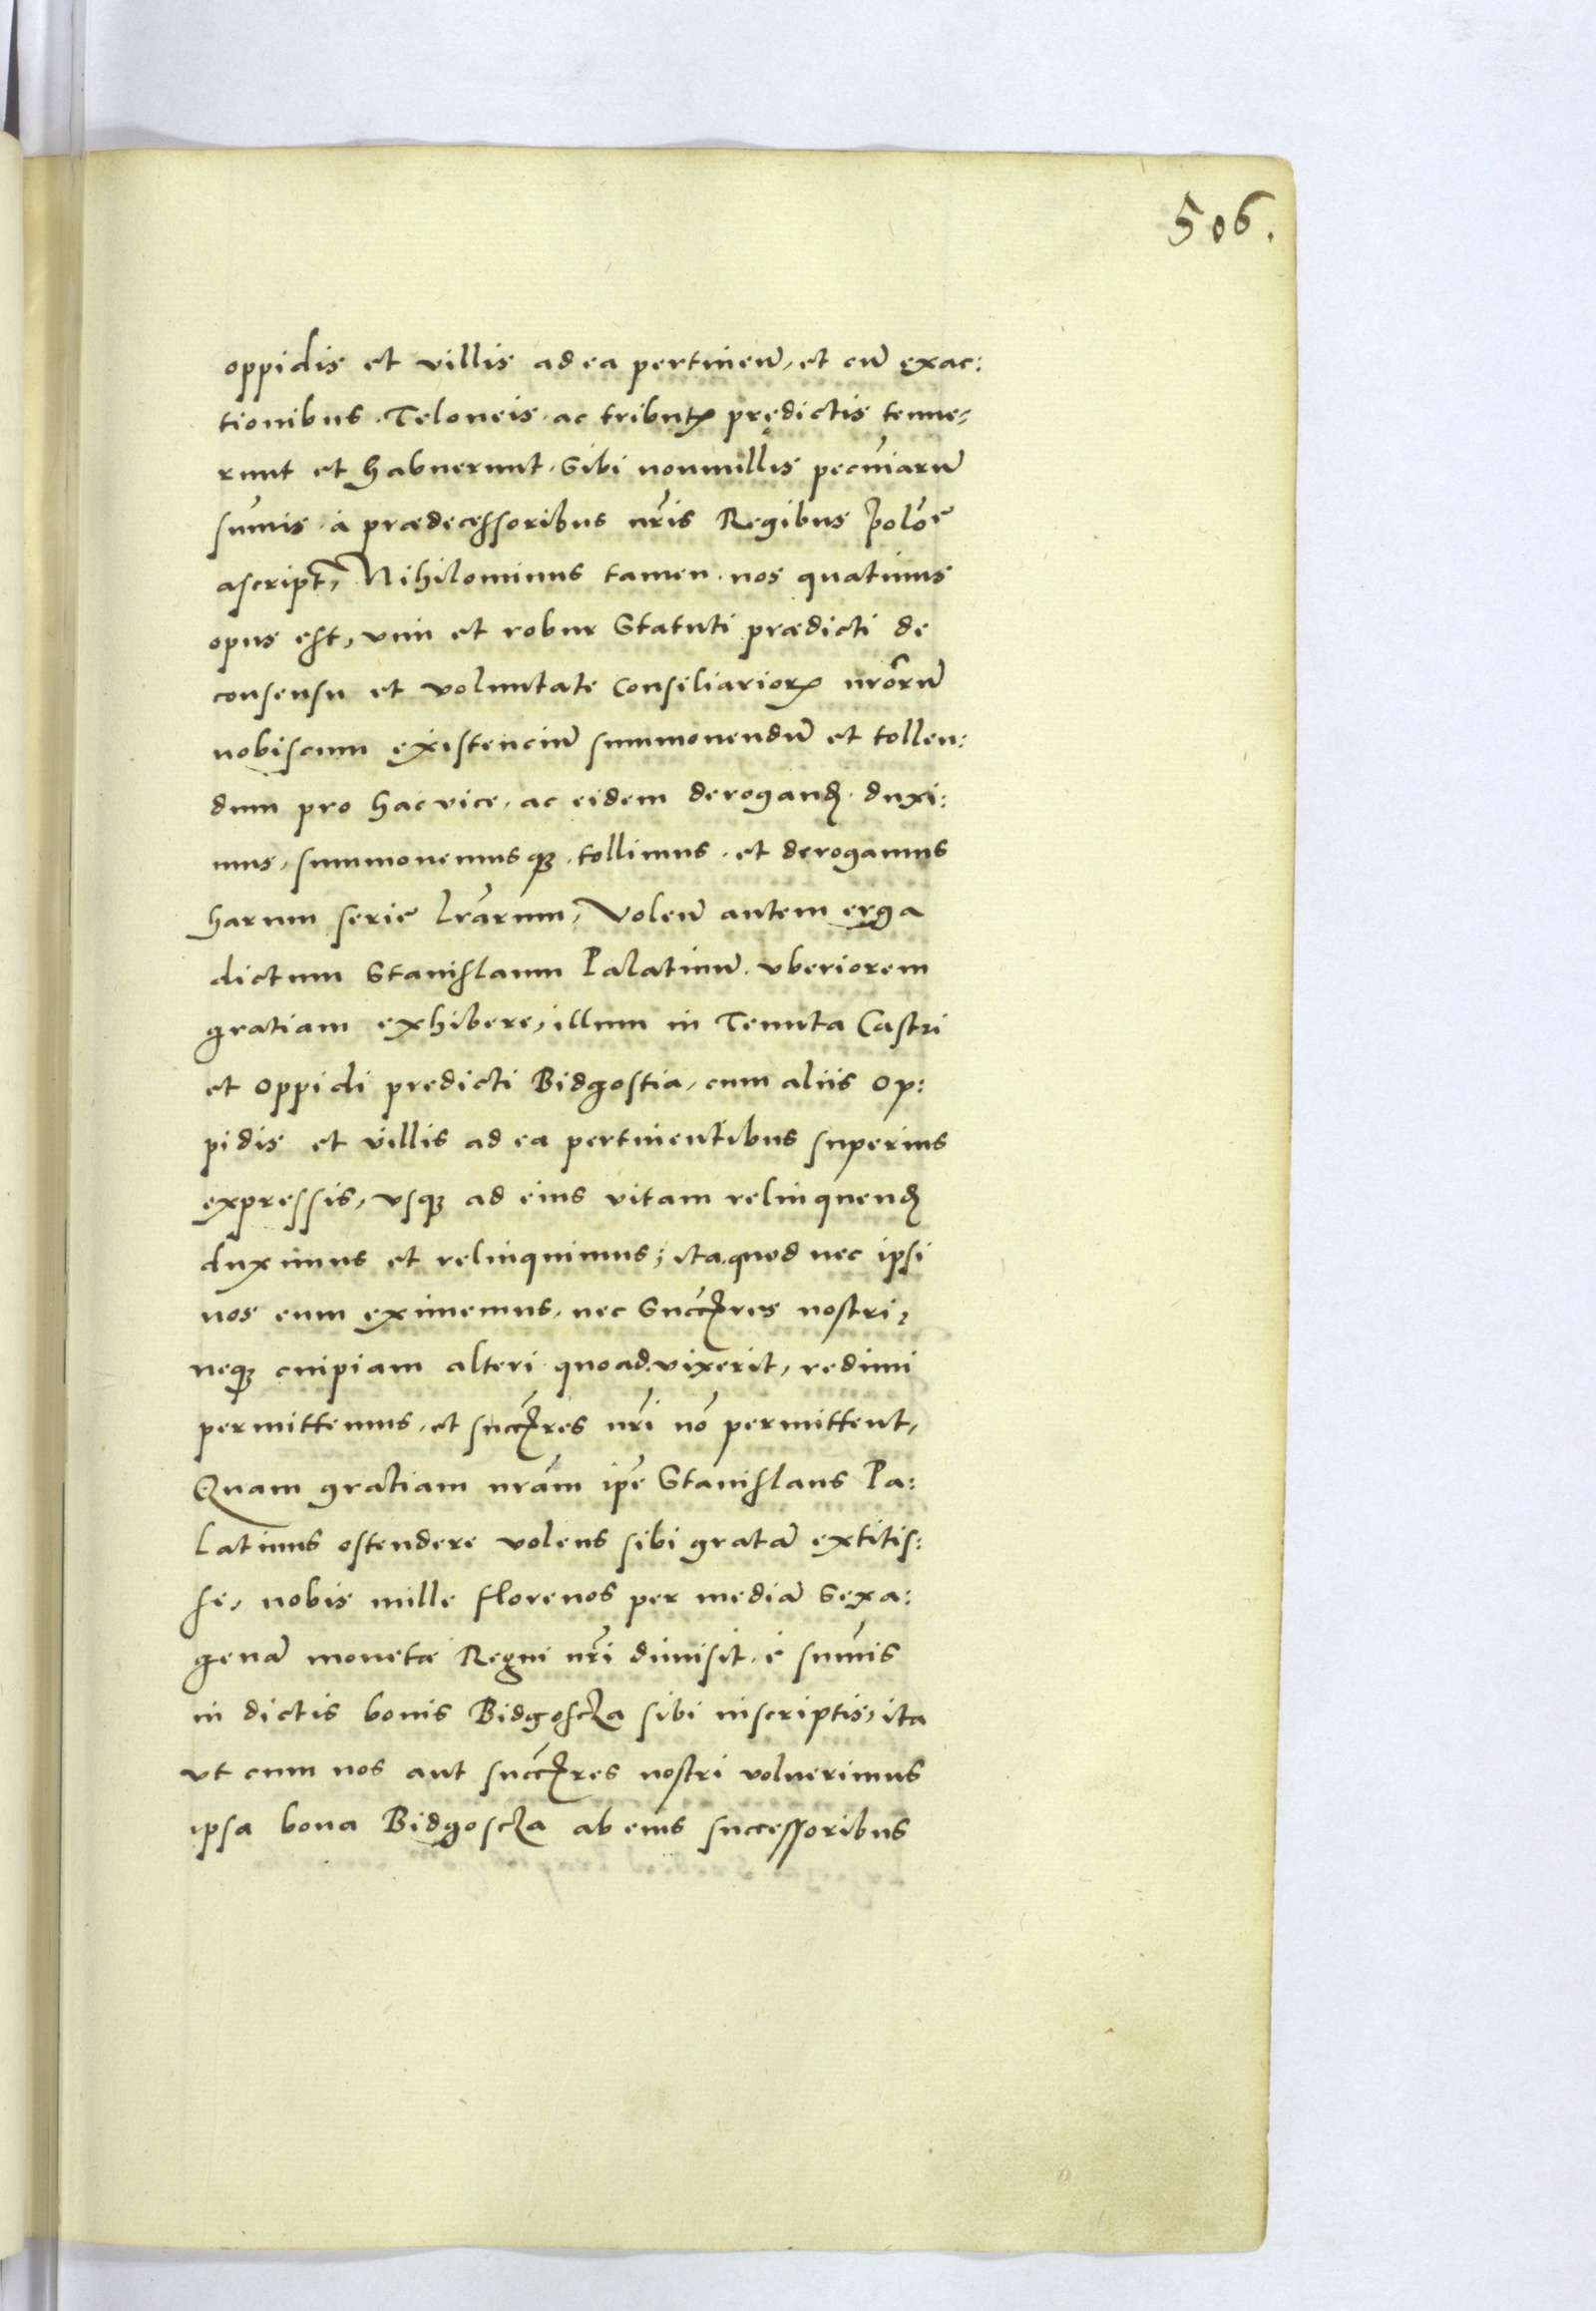 506.
oppidis et villis ad ea pertinen̄, et cū exac:
tionibus. Teloneis. ac tributꝭ prędictis tenue,
runt et habuerunt. Sibi nonnullis pecuniarū
sum̄is. à prædecessoribus nr̄is Regibus Polōe
ascript, Nihilominus tamen. nos quatinus
opus est, vim et robur Statuti prædicti de
consensu et voluntate Consiliarioꝝ nr̄orū
nobiscum existenciū summonendū et tollen:
dum pro hac vice, ac eidem derogand. duxi:
mus. summonemusqꝫ. tollimus. et derogamus
harum serie lr̄arum, Volen̄ autem erga
dictum Stanislaum Palatinū. vberiorem
gratiam exhibere, illum in Tenuta Castri
et oppidi predicti Bidgostia, cum aliis op:
pidis et villis ad ea pertinentibus superius
expressis, vsqꝫ ad eius vitam relinquend
duximus et relinquimus; ita.quod nec ipsi
nos eum eximemus, nec Succ̄res nostri,
neqꝫ cuipiam alteri quoad.vixerit, redimi
permittemus, et succ̄res nr̄i nō permittent,
Quam gratiam nr̄am ip̄e Stanislaus Pa:
latinus ostendere volens sibi gratā extitis:
se, nobis mille florenos per mediā Sexa:
genā monetæ Regni nr̄i dimisit. è sum̄is
in dictis bonis Bidgoscza sibi inscriptis, ita
vt cum nos aut succ̄res nostri voluerimus
ipsa bona Bidgoscza ab eius successoribus